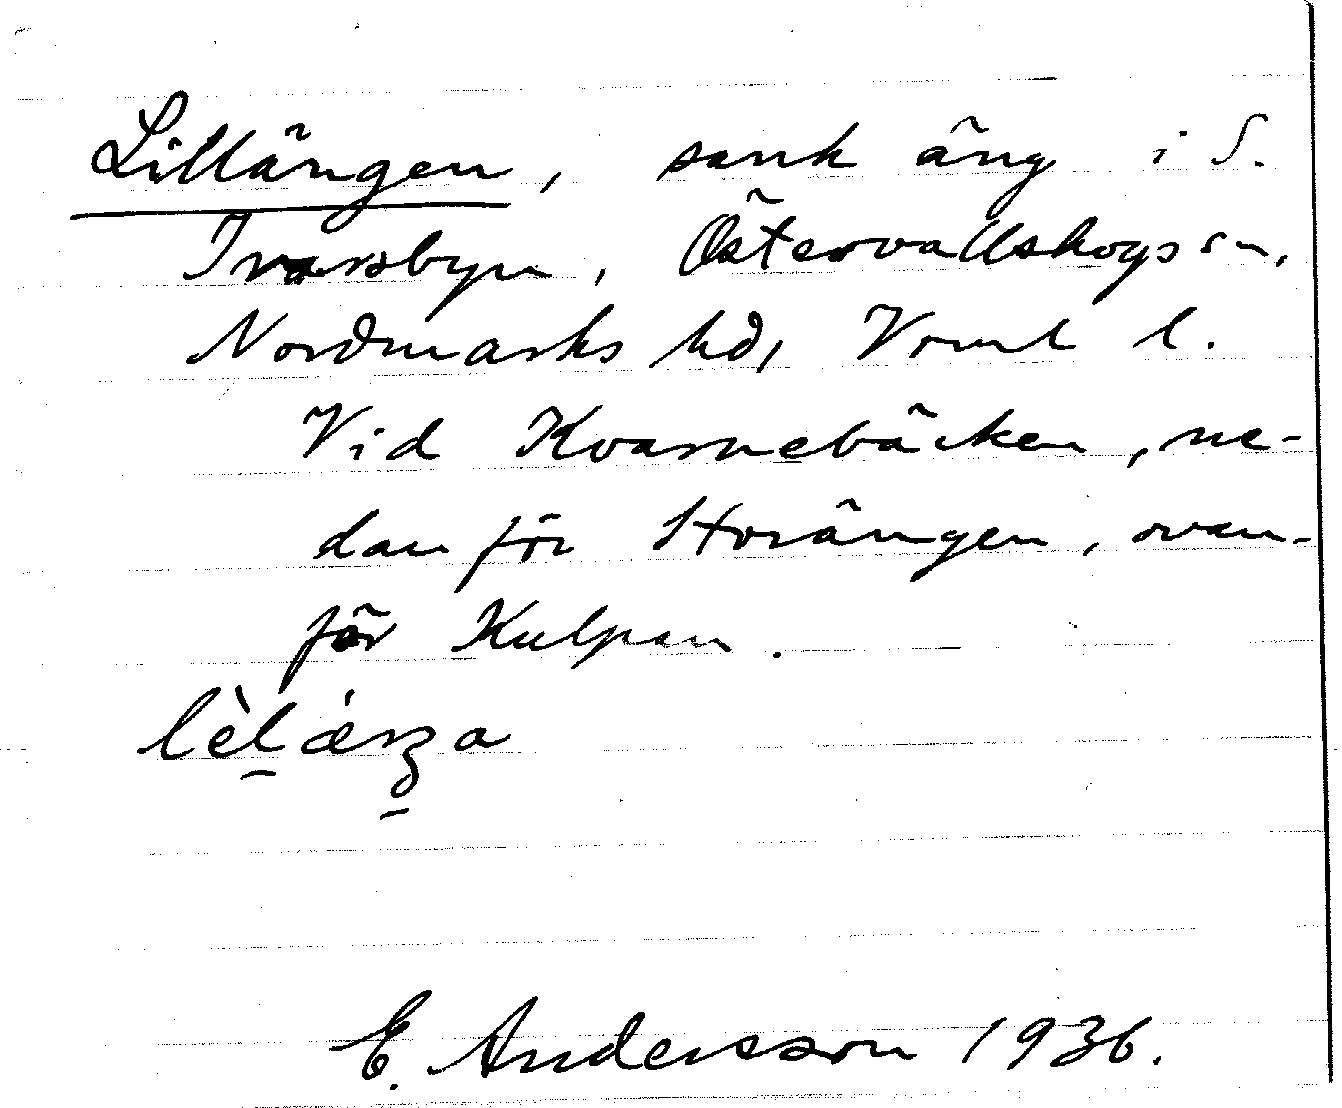 Lillängen, sank äng i S.
Ivarsbyn, Östervallskogs sn,
Nordmarks hd, Verml l.
Vid Kvarnebäcken, ne-
dan för Storängen, ovan-
för Kulpan.
E. Andersson 1936.